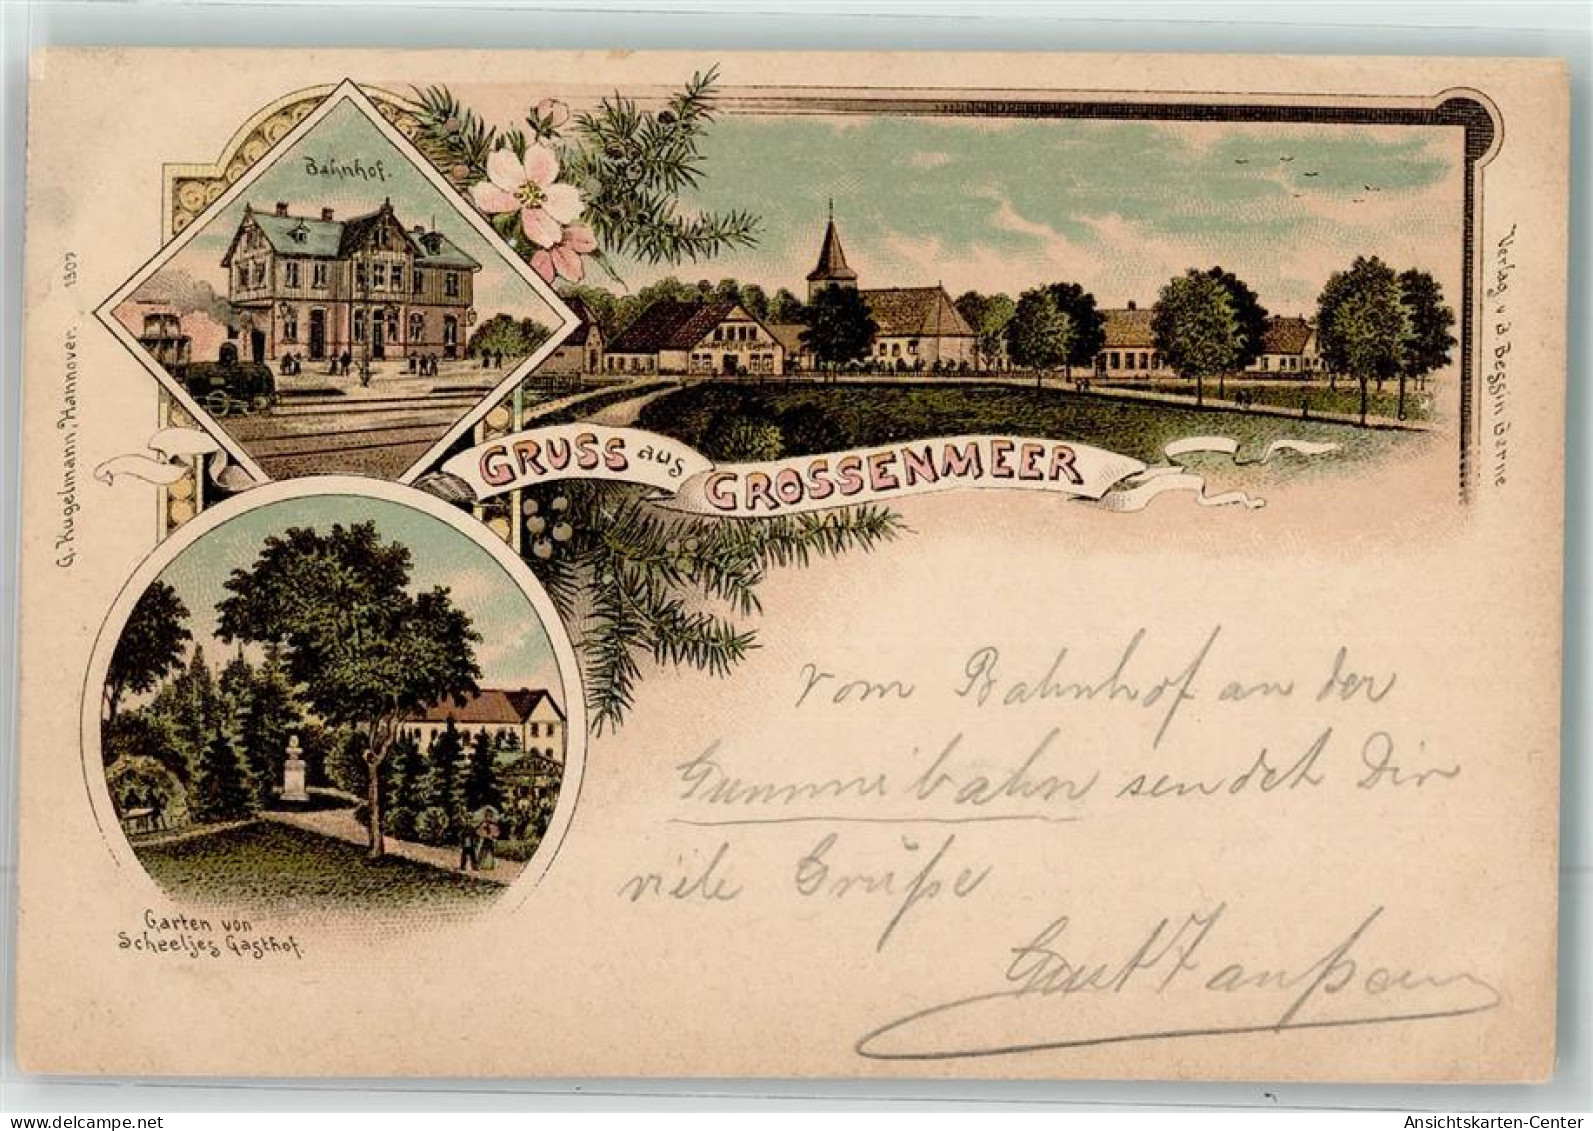 Bahnhof.
GRUSS aus
GROSSENMEER
Garten von
Scheeljes Gasthof.
G. Kugelmann, Hannover. 1307
Verlag v. B. Bessin Berne
Vom Bahnhof an der
Gummibahn sendet Dir
viele Grüße
Gust
Ansichtskarten-Center